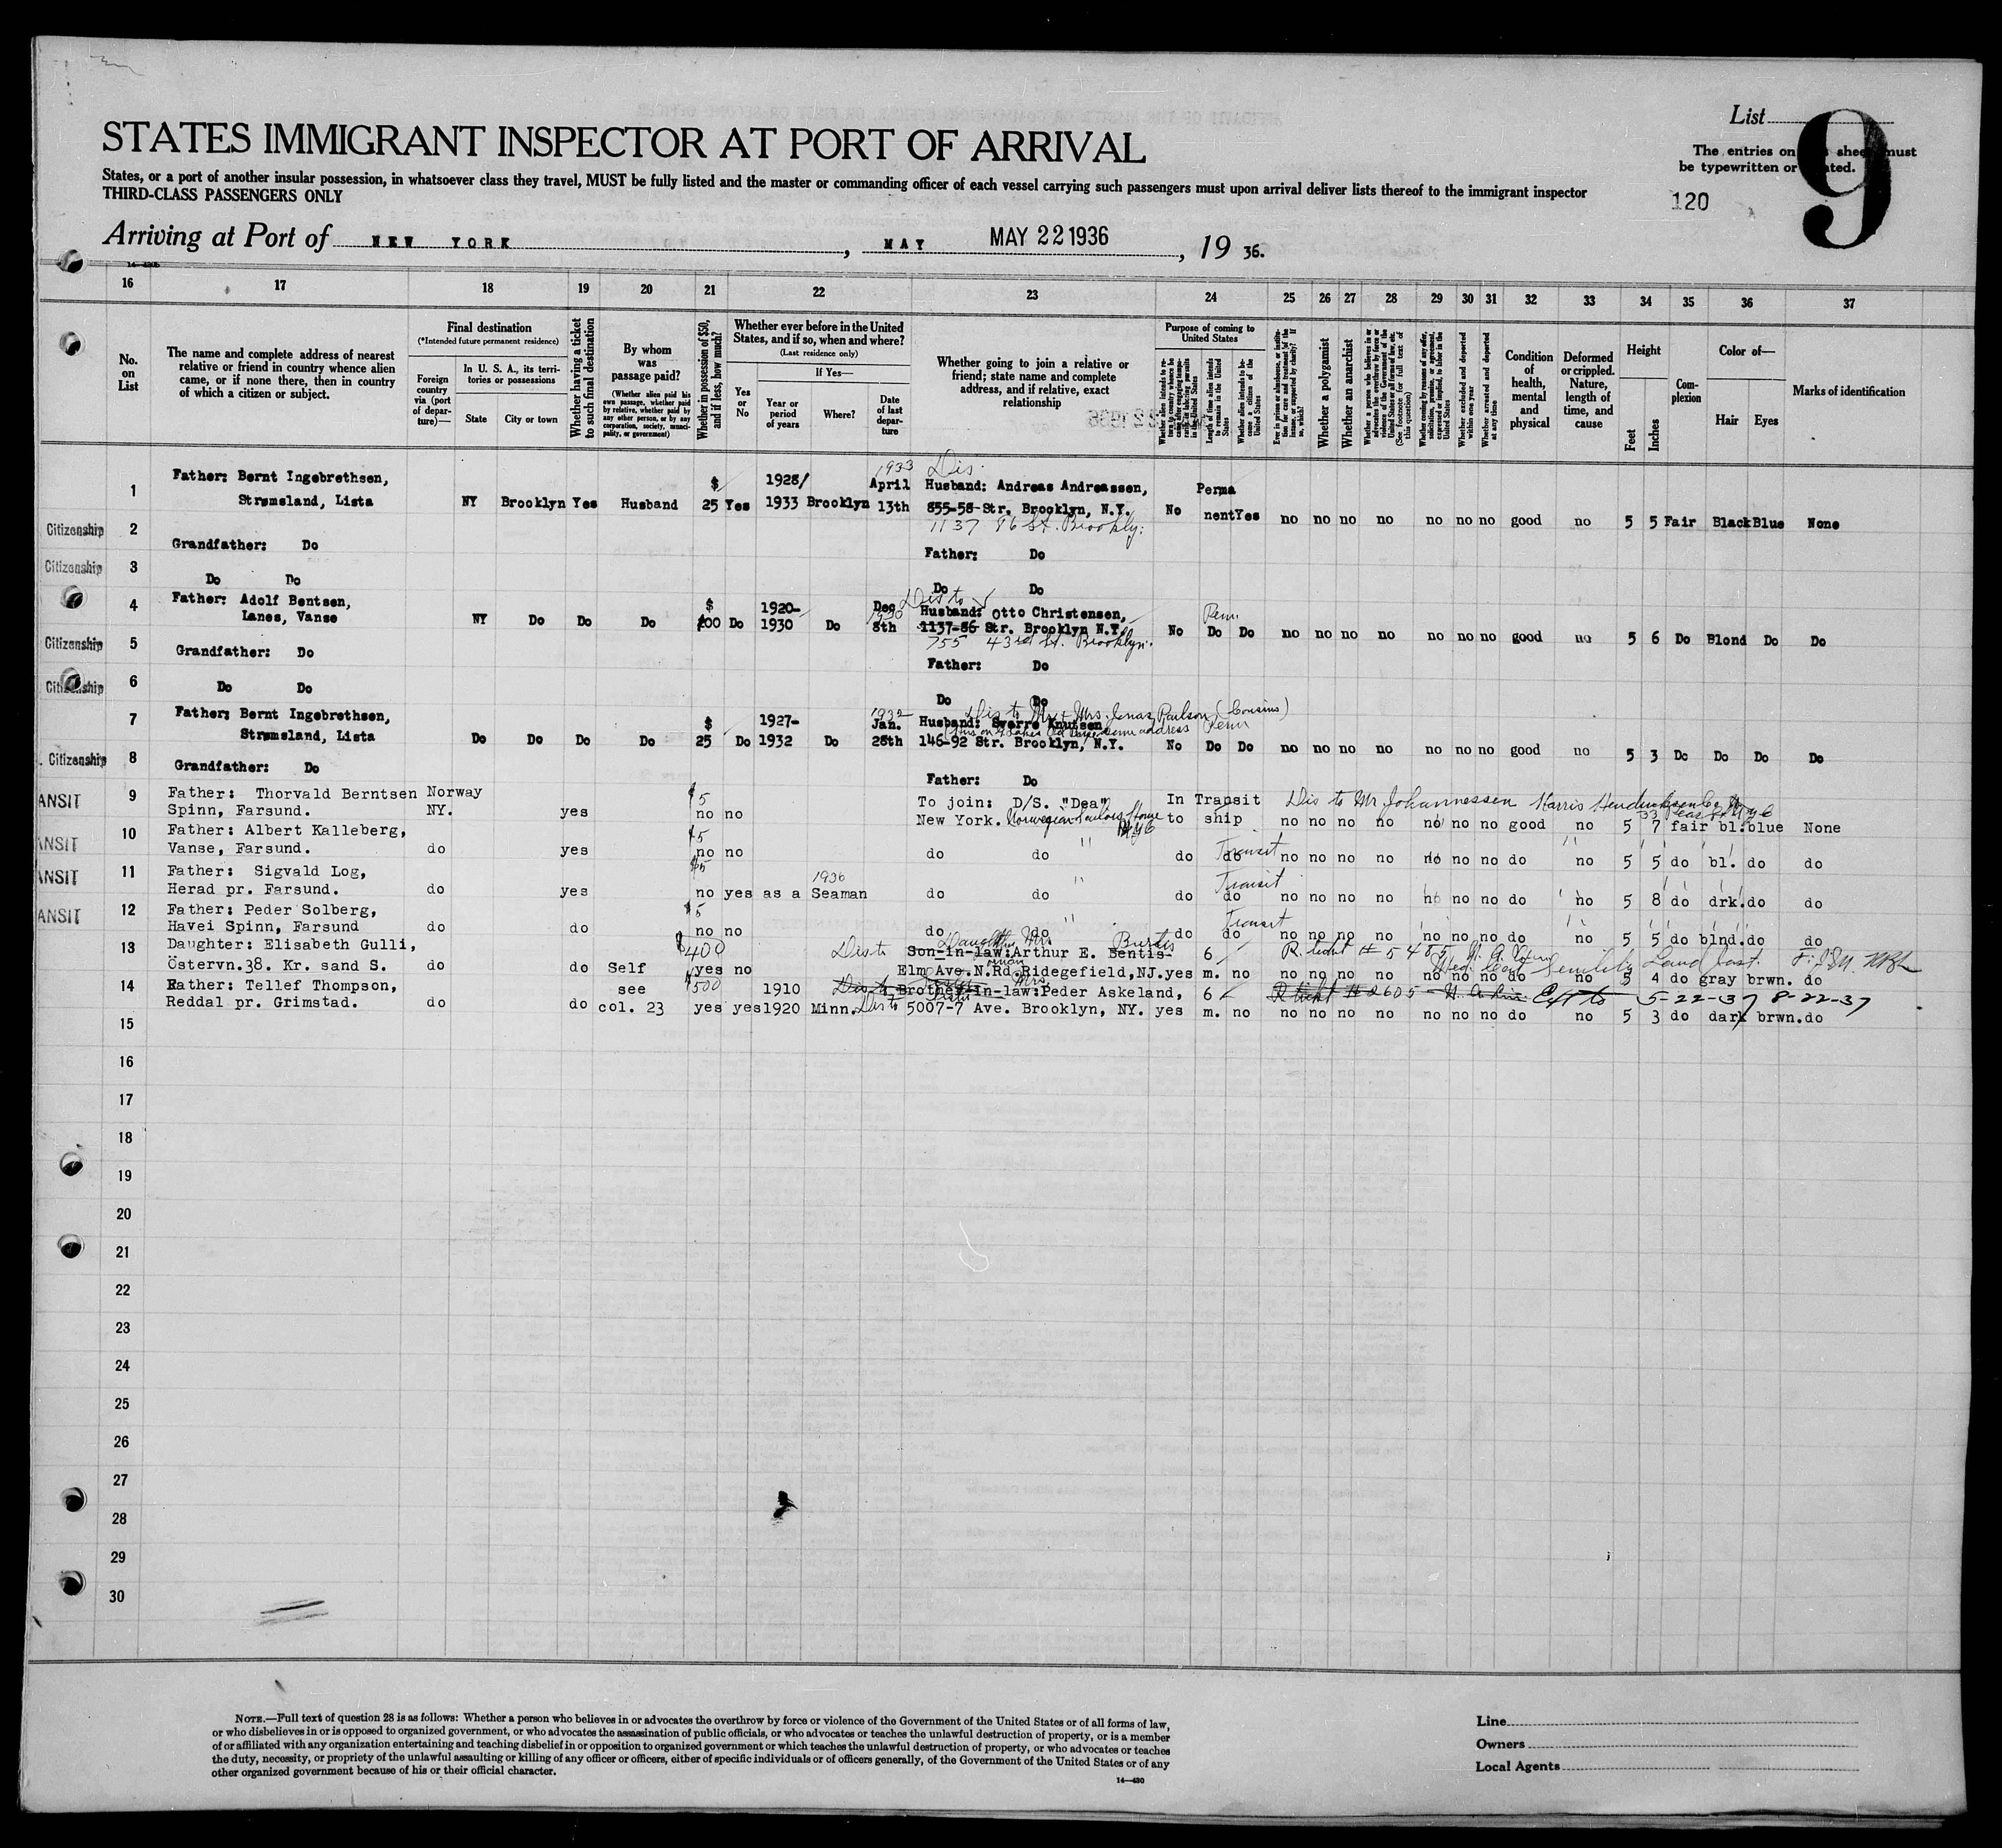 List
9
STATES IMMIGRANT INSPECTOR AT PORT OF ARRIVAL
The entries on sheet must
be typewritten or
States, or a port of another insular possession, in whatsoever class they travel, MUST be fully listed and the master or commanding officer of each vessel carrying such passengers must upon arrival deliver lists thereof to the immigrant inspector
THIRD-CLASS PASSENGERS ONLY
120
Arriving at Port of NEW YORK, MAY MAY 22 1936, 19 36.
16 17 18 19 20 21 22 23 24 25 26 27 28 29 30 31 32 33 34 35 36 37
No. on List
The name and complete address of nearest relative or friend in country whence alien came, or if none there, then in country of which a citizen or subject.
Final destination
(*Intended future permanent residence)
Foreign country via (port of departure)—
In U. S. A., its territories or possessions
State
City or town
Whether having a ticket to such final destination
By whom was passage paid?
(Whether alien paid his own passage, whether paid by relative, whether paid by any other person, or by any corporation, society, municipality, or government)
Whether in possession of $50, and if less, how much?
Whether ever before in the United States, and if so, when and where?
(Last residence only)
Yes or No
If Yes—
Year or period of years
Where?
Date of last departure
Whether going to join a relative or friend; state name and complete address, and if relative, exact relationship
Purpose of coming to United States
Length of time alien intends to remain in the United States
Whether alien intends to become a citizen of the United States
Whether a polygamist
Whether an anarchist
Whether excluded and deported within one year
Whether arrested and deported at any time
Condition of health, mental and physical
Deformed or crippled. Nature, length of time, and cause
Height
Feet
Inches
Complexion
Color of—
Hair
Eyes
Marks of identification
1933 Dis.
1 Father: Bernt Ingebrethsen, $ 1928/ April Husband: Andreas Andreassen, Perma
Strømsland, Lista NY Brooklyn Yes Husband 25 Yes 1933 Brooklyn 13th 855-58-Str. Brooklyn, N.Y. No nent Yes no no no no no no no good no 5 5 Fair Black Blue None
1137 86 St. Brookly.
Citizenship 2 Grandfather: Do Father: Do
Citizenship 3 Do Do Do Do
Dis to
4 Father: Adolf Bentsen, $ 1920- Dec 1930 Husband: Otto Christensen, Perm
Lanes, Vanse NY Do Do Do 200 Do 1930 Do 8th 1137-86 Str. Brooklyn N.Y. No Do Do no no no no no no no good no 5 6 Do Blond Do Do
755 43rd St. Brooklyn.
Citizenship 5 Grandfather: Do Father: Do
Citizenship 6 Do Do Do Do
Dis to Mr & Mrs. Jonas Paulson (Cousins)
7 Father: Bernt Ingebrethsen, $ 1927- 1932 Jan. Husband: Sverre Knutsen Perm
same address
Strømsland, Lista Do Do Do Do 25 Do 1932 Do 28th 146-92 Str. Brooklyn, N.Y. No Do Do no no no no no no no good no 5 3 Do Do Do Do
Citizenship 8 Grandfather: Do Father: Do
ANSIT 9 Father: Thorvald Berntsen Norway $5 To join: D/S. "Dea" In Transit Dis to Mr Johannessen Harris
Spinn, Farsund. NY. yes no no New York. Norwegian Sailors Home to ship no no no no no no no good no 5 7 fair bl. blue None
ANSIT 10 Father: Albert Kalleberg, $5
Vanse, Farsund. do yes no no do do " do do Transit no no no no no no no do no 5 5 do bl. do do
ANSIT 11 Father: Sigvald Log, $5 1936
Herad pr. Farsund. do yes no yes as a Seaman do do " do do Transit no no no no no no no do no 5 8 do drk. do do
ANSIT 12 Father: Peder Solberg, $5
Havei Spinn, Farsund do do no no do do " do do Transit no no no no no no no do no 5 5 do blnd. do do
13 Daughter: Elisabeth Gulli, $400 Dis to Daughter Mrs. Burtis Son-in-law: Arthur E. Bentis- 6
Östervn.38. Kr. sand S. do do Self yes no Elm Ave. N.Rd. Ridegefield, NJ. yes m. no no no no no no no no do no 5 4 do gray brwn. do
14 Father: Tellef Thompson, see $500 1910 Brother-in-law: Peder Askeland, 6 Ext to 5-22-37 8-22-37
Reddal pr. Grimstad. do do col. 23 yes yes 1920 Minn. Dis to 5007-7 Ave. Brooklyn, NY. yes m. no no no no no no no no do no 5 3 do dark brwn. do
15
16
17
18
19
20
21
22
23
24
25
26
27
28
29
30
NOTE.—Full text of question 28 is as follows: Whether a person who believes in or advocates the overthrow by force or violence of the Government of the United States or of all forms of law,
or who disbelieves in or is opposed to organized government, or who advocates the assassination of public officials, or who advocates or teaches the unlawful destruction of property, or is a member
of or affiliated with any organization entertaining and teaching disbelief in or opposition to organized government or which teaches the unlawful destruction of property, or who advocates or teaches
the duty, necessity, or propriety of the unlawful assaulting or killing of any officer or officers, either of specific individuals or of officers generally, of the Government of the United States or of any
other organized government because of his or their official character.
14—430
Line
Owners
Local Agents